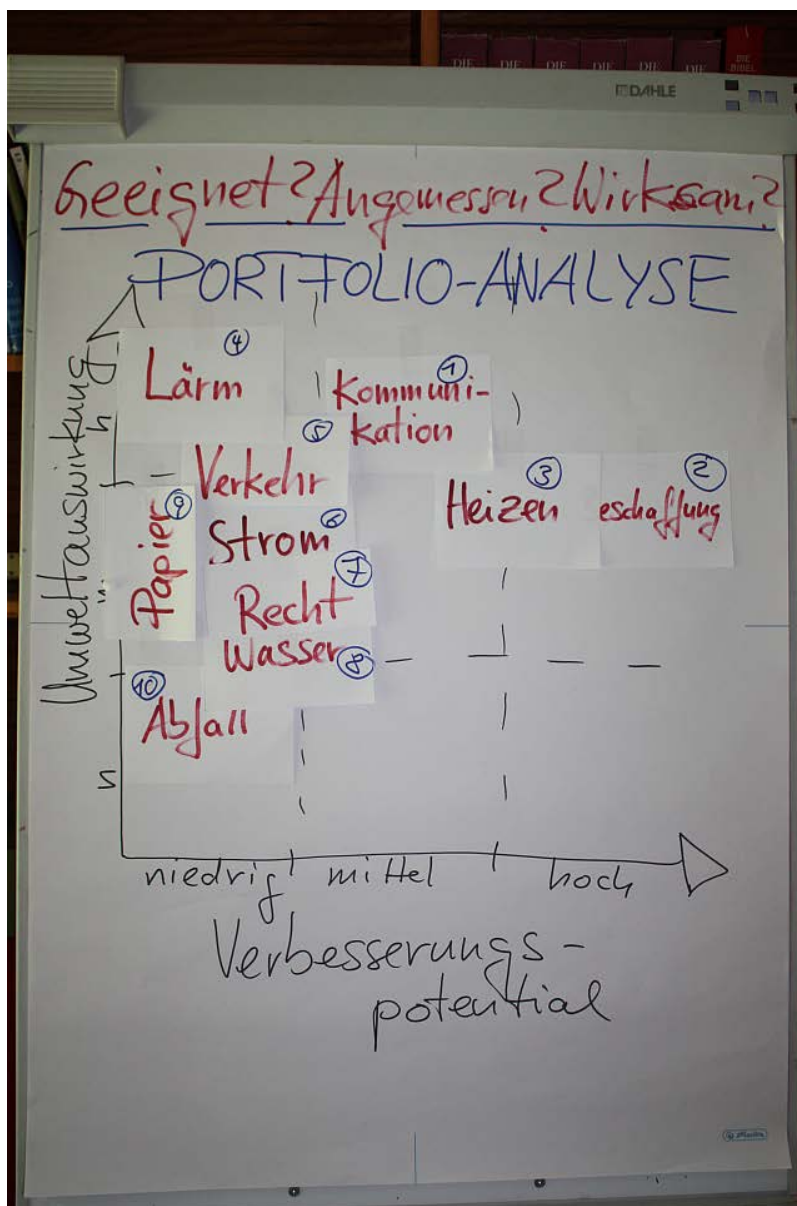 DIE DIE DIE DIE DIE DIE DIE
BIBEL
DAHLE
Geeignet? Angemessen? Wirksam?
PORTFOLIO-ANALYSE
Umweltauswirkung
h
n
4
Lärm
1
Kommuni-
kation
5
Verkehr
3
Heizen
2
eschaffung
9
Papier
6
Strom
7
Recht
Wasser 8
10
Abfall
niedrig mittel hoch
Verbesserungs-
potential